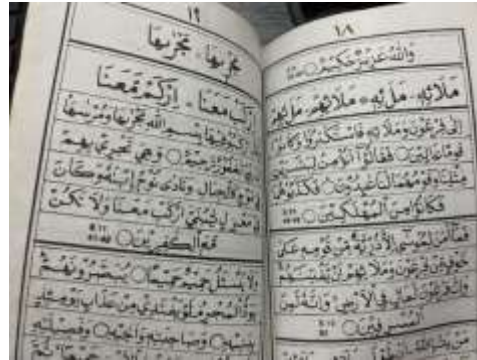 ١٨
وَاللّٰهُ عَزِيْزٌ حَكِيْمٌ ○
مَلَا۟ئِهٖ۔ مَلَئِهٖ ۔ مَلَا۟ئِهِمْ۔ مَلَئِهِمْ
اِلٰى فِرْعَوْنَ وَمَلَا۟ئِهٖ فَاسْتَكْبَرُوْا وَكَانُوْا
قَوْمًا عَالِيْنَ ○ فَقَالُوْٓا اَنُؤْمِنُ لِبَشَرَيْنِ
مِثْلِنَا وَقَوْمُهُمَا لَنَا عٰبِدُوْنَ ○ فَكَذَّبُوْهُمَا
فَكَانُوْا مِنَ الْمُهْلَكِيْنَ ○
فَمَآ اٰمَنَ لِمُوْسٰٓى اِلَّا ذُرِّيَّةٌ مِّنْ قَوْمِهٖ عَلٰى
خَوْفٍ مِّنْ فِرْعَوْنَ وَمَلَا۟ئِهِمْ اَنْ يَّفْتِنَهُمْ
وَاِنَّ فِرْعَوْنَ لَعَالٍ فِى الْاَرْضِ وَاِنَّهٗ لَمِنَ
الْمُسْرِفِيْنَ ○
١٩
مَجْرٖىهَا ۔ مَجْرٰىهَا
ارْكَبْ مَّعَنَا ۔ اِرْكَمْ مَّعَنَا
ارْكَبُوْا فِيْهَا بِسْمِ اللّٰهِ مَجْرٖىهَا وَمُرْسٰىهَا
لَغَفُوْرٌ رَّحِيْمٌ ○ وَهِىَ تَجْرِىْ بِهِمْ
مَوْجٍ كَالْجِبَالِ وَنَادٰى نُوْحُ ابْنَهٗ وَكَانَ
مَعْزِلٍ يّٰبُنَىَّ ارْكَبْ مَّعَنَا وَلَا تَكُنْ
مَّعَ الْكٰفِرِيْنَ ○
وَلَا يَسْئَلُ حَمِيْمٌ حَمِيْمًا ○ يُّبَصَّرُوْنَهُمْ
يَوَدُّ الْمُجْرِمُ لَوْ يَفْتَدِىْ مِنْ عَذَابِ يَوْمِئِذٍ
بِبَنِيْهِ ○ وَصَاحِبَتِهٖ وَاَخِيْهِ ○ وَفَصِيْلَتِهِ